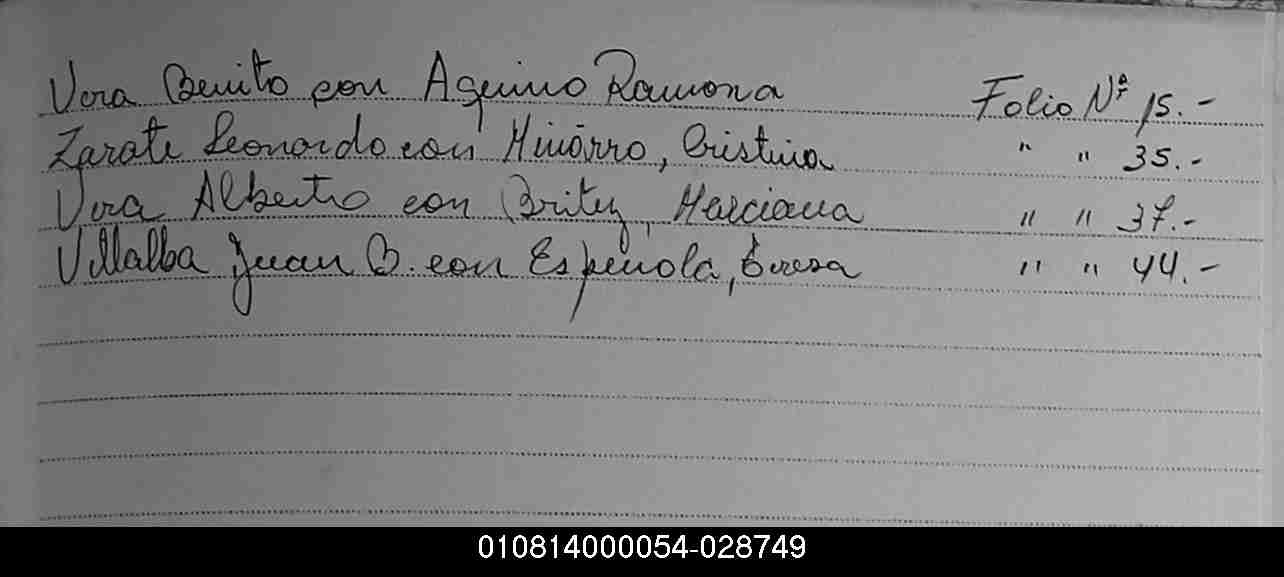 Vera Benito con Aquino Ramona Folio Nº 15.-
Zarate Leonardo con Miñarro, Cristina " " 35.-
Vera Alberto con Britez, Marciana " " 37.-
Villalba Juan B. con Espinola, Teresa " " 44.-
010814000054-028749